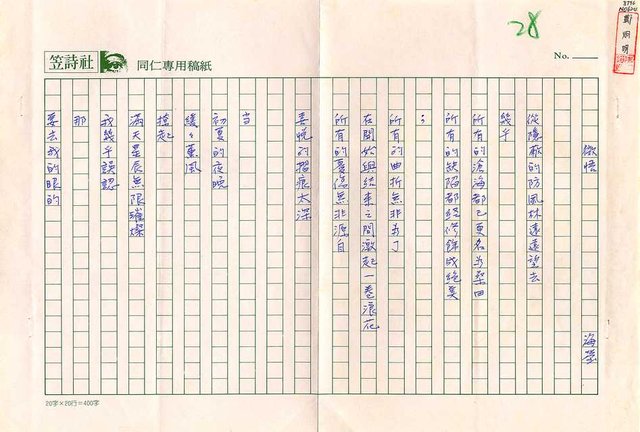 28
No.
鄭烱明
笠詩社
同仁專用稿紙
悟
海瑩
從隱蔽的防風林遠遠望去
幾乎
所有的滄海都已更名為桑田
所有的缺陷都經修飾成絕美
；
所有的曲折無非為了
在開始與結束之間激起一卷浪花
所有的憂傷無非源自
喜悅的摺痕太深
当
初夏的夜晚
緩々薰風
撩起
滿天星辰無限璀燦
我幾乎誤認
那
要去我的眼的
20字×20行=400字